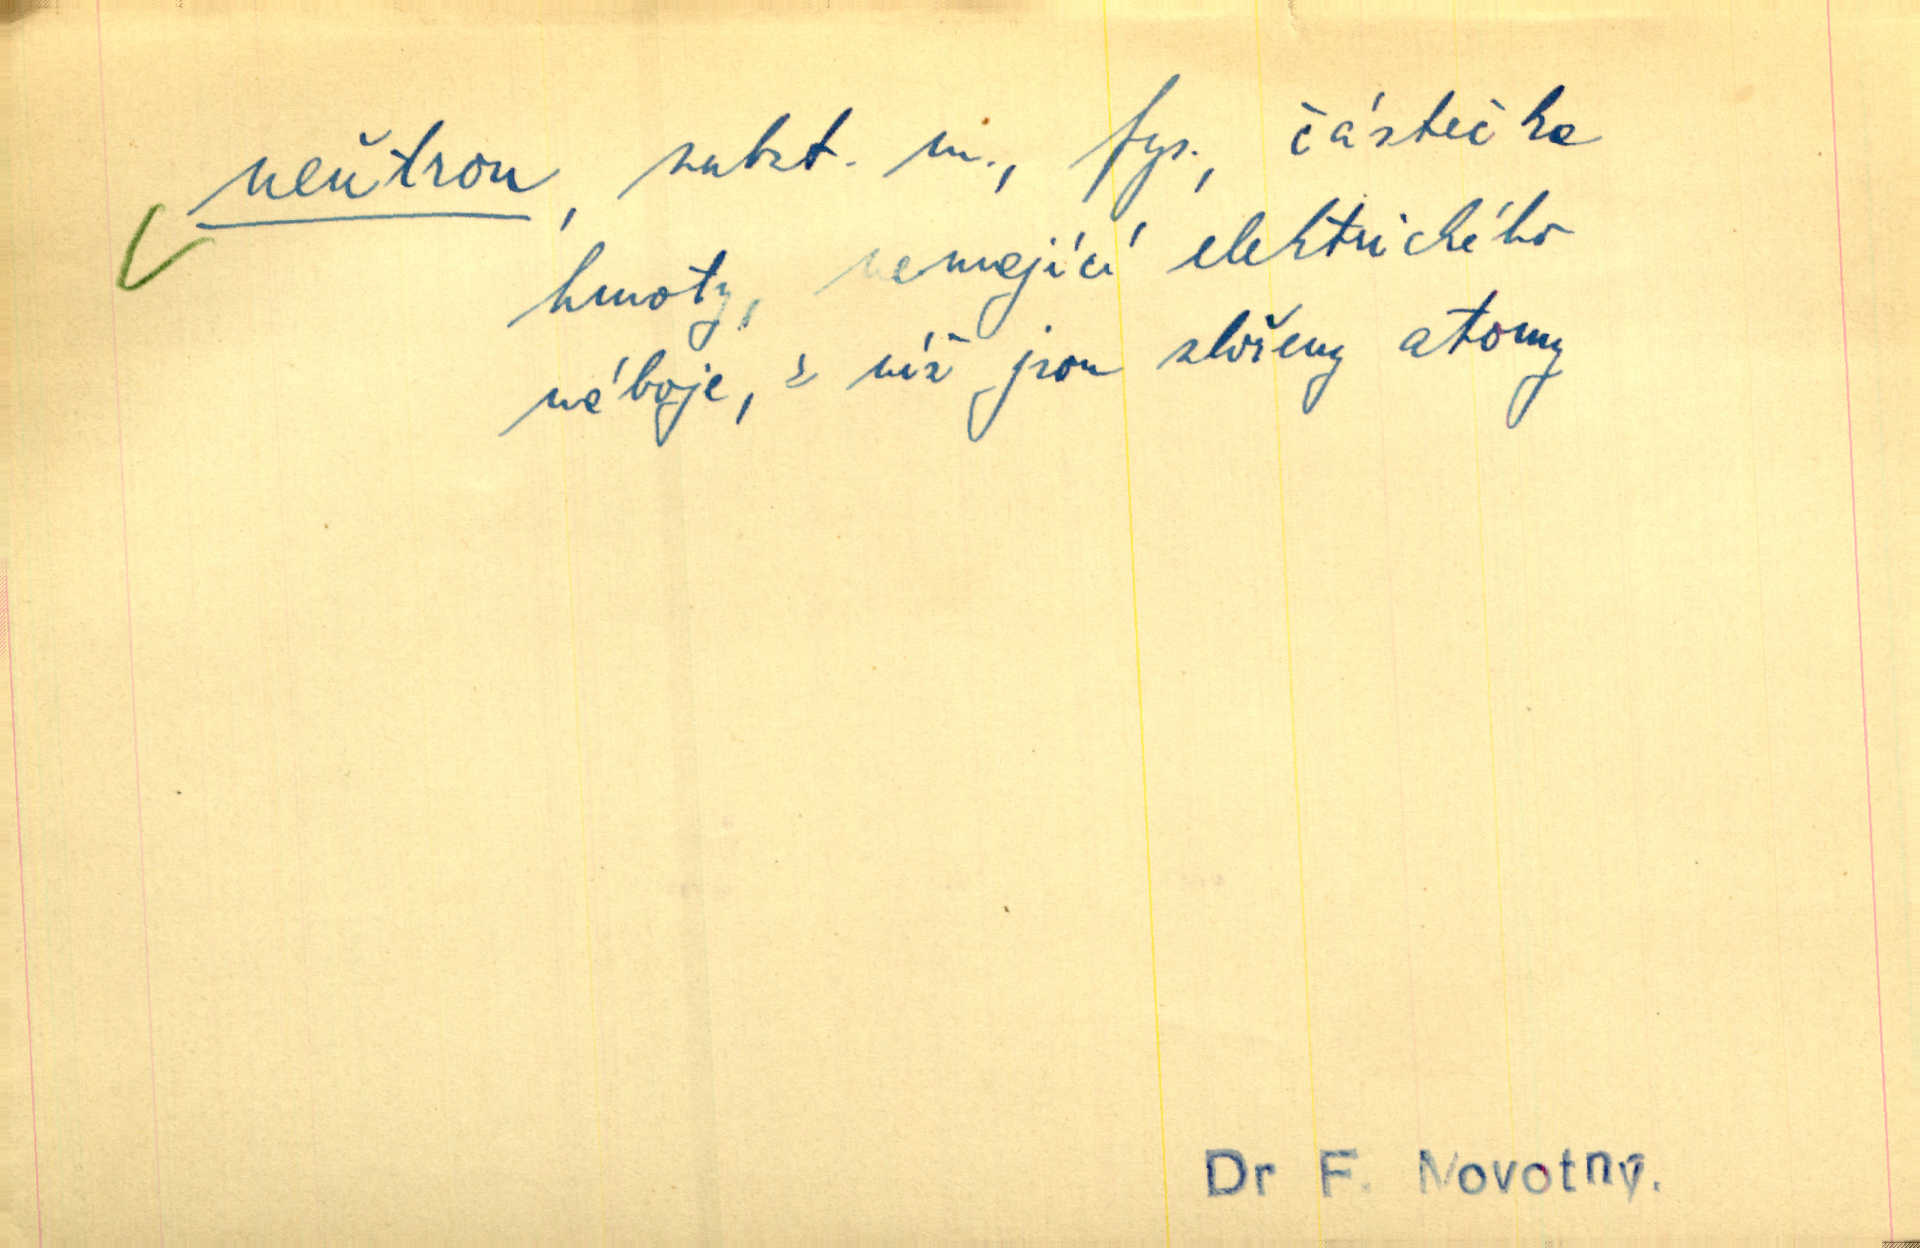 neutron, subst. m., fys., částečka
hmoty, nemající elektrického
náboje, z níž jsou složeny atomy
Dr F. Novotný.